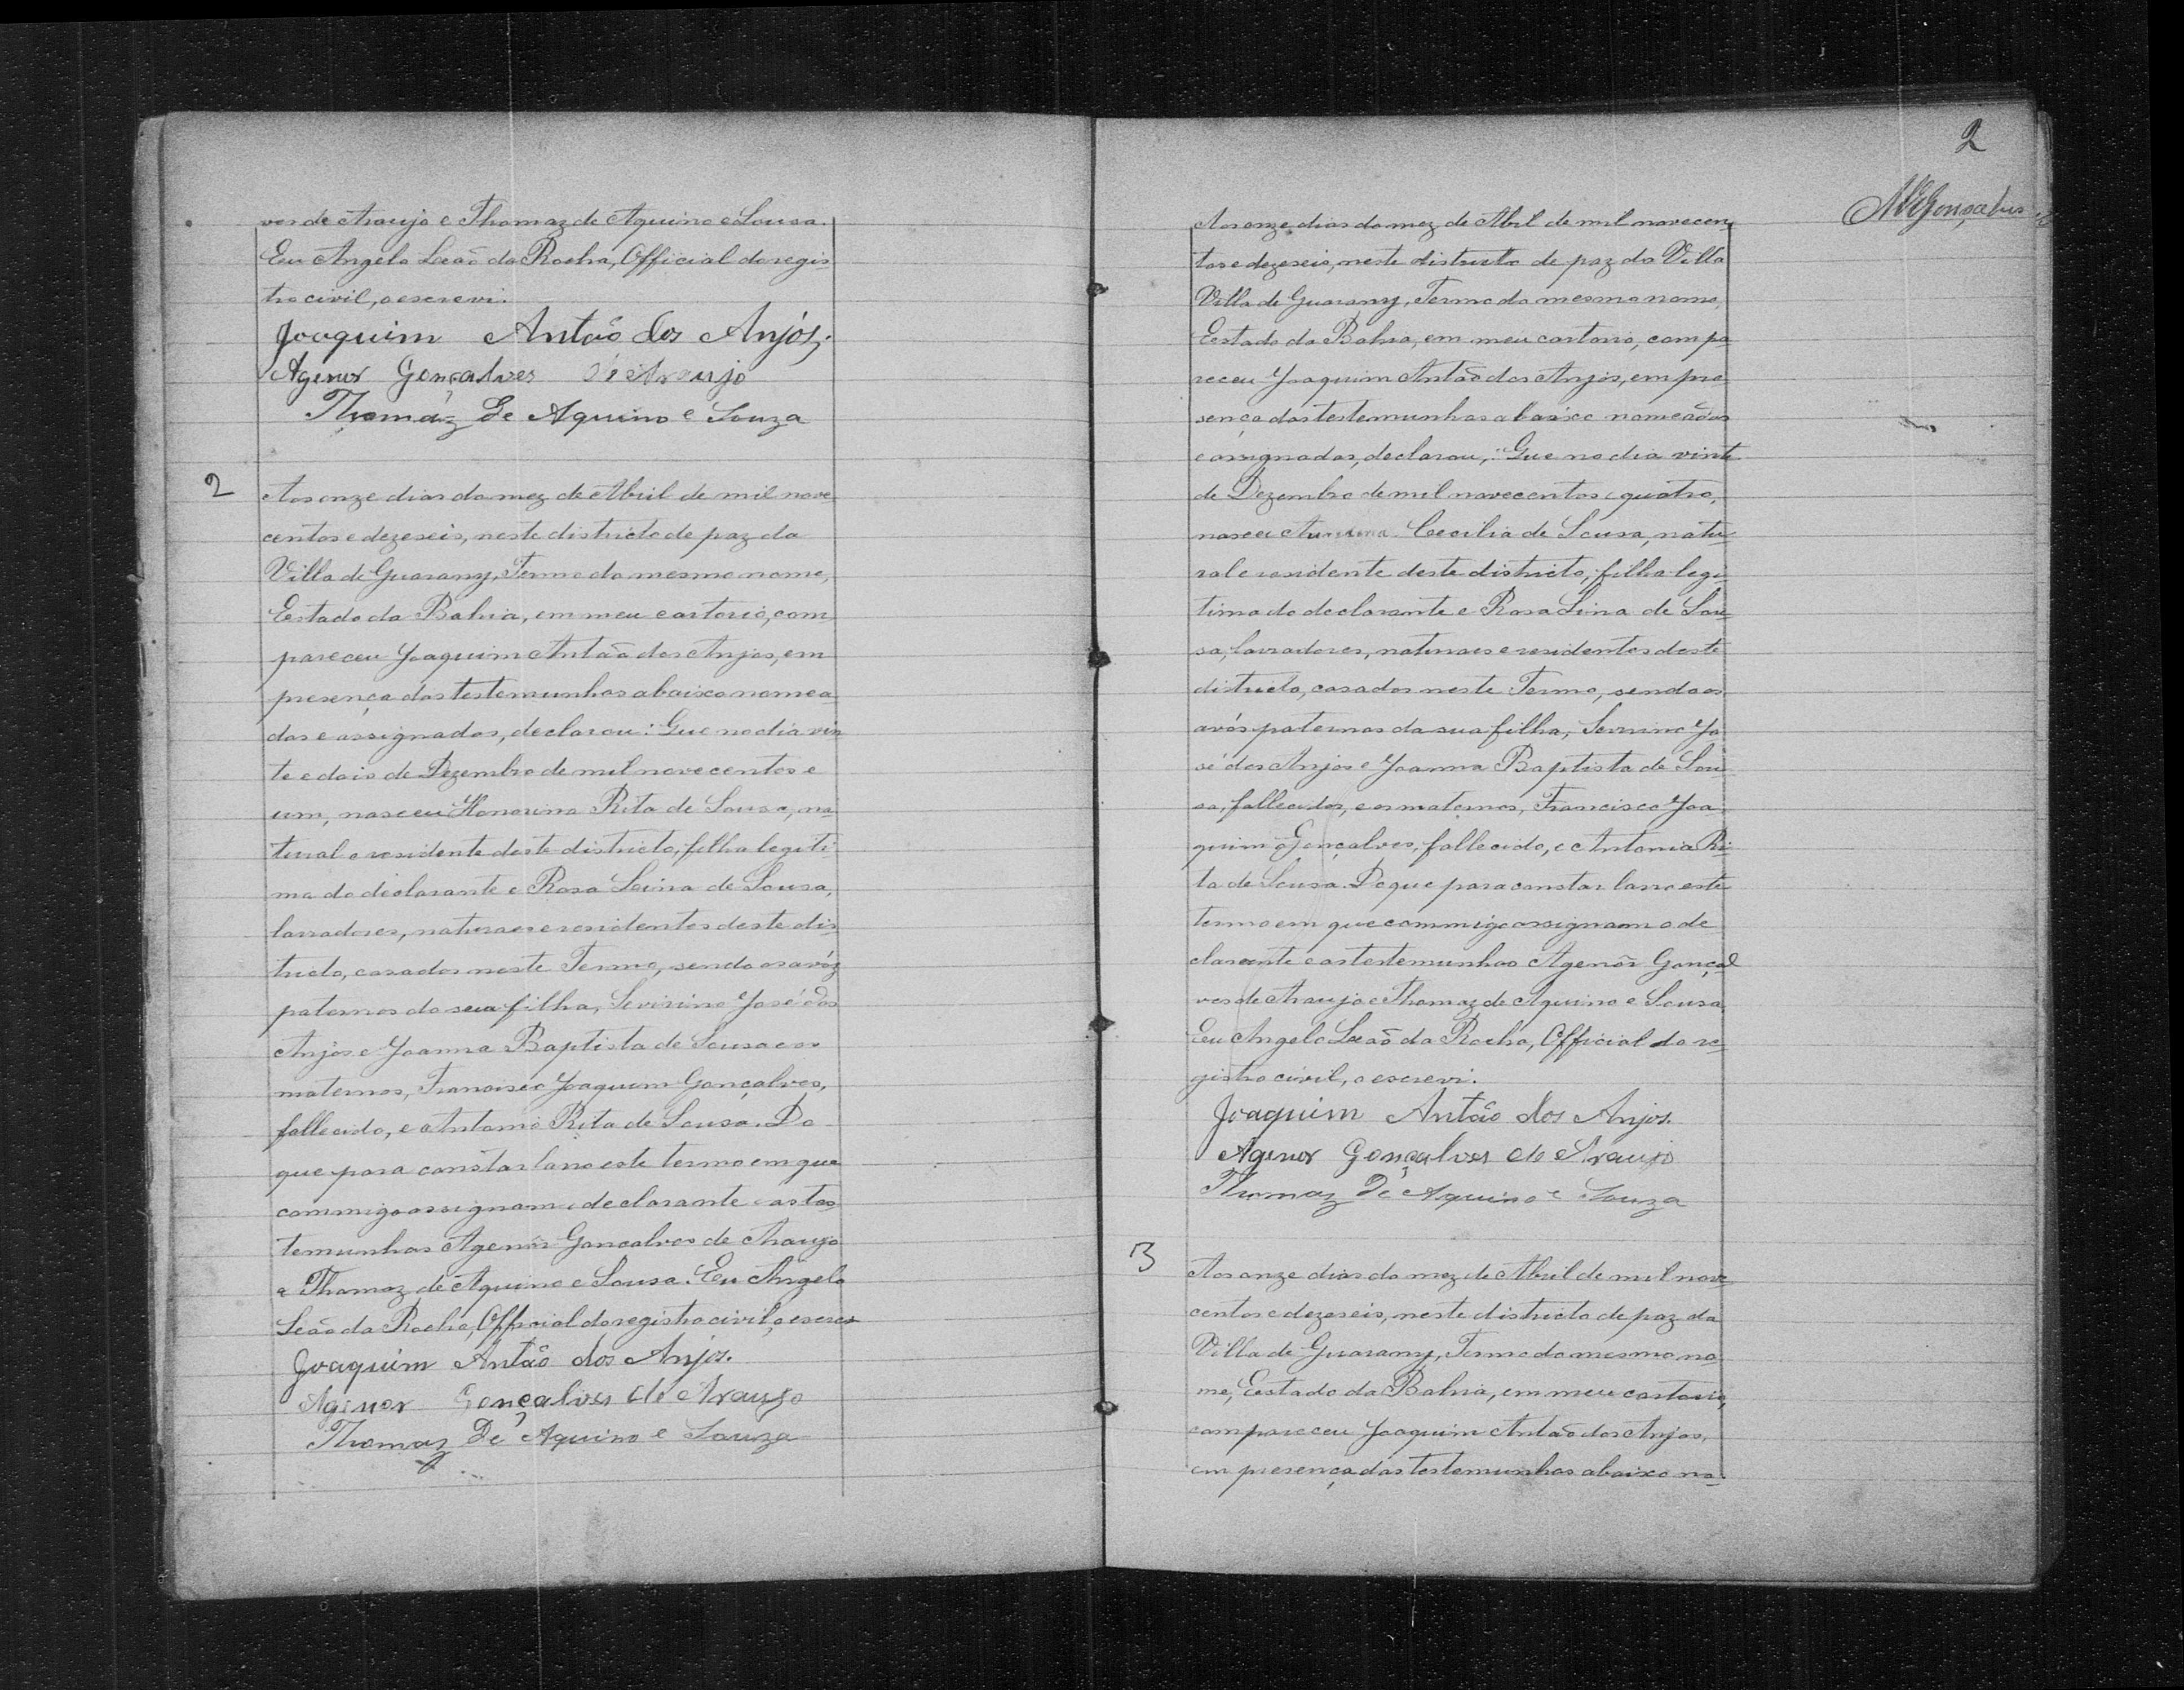 ves de Araujo e Thomaz de Aquino e Sousa.
Eu Angelo Leão da Rocha, Official do regis
tro civil, o escrevi.
Joaquim Antão dos Anjos,
Agenor Gonçalves de Araujo
Thomáz De Aquino e Souza
2
Aos onze dias do mez de Abril de mil nove
centos e dezeseis, neste districto de paz da
Villa de Guarany, Termo do mesmo nome,
Estado da Bahia, em meu cartorio, com
pareceu Joaquim Antão dos Anjos, em
presença das testemunhas abaixo nomea
das e assignadas, declarou: Que no dia vin
te e dois de Dezembro de mil novecentos e
um, nasceu Honorina Rita de Sousa, na
tural e residente deste districto, filha legiti
ma do declarante e Rosa Leina de Sousa,
lavradores, naturaes e residentes deste dis
tricto, casados neste Termo, sendo os avóz
paternos da sua filha, Sivirino José dos
Anjos e Joanna Baptista de Sousa e os
maternos, Francisco Joaquim Gonçalves,
fallecido, e Antonia Rita de Sousa. Do
que para constar lavro este termo em que
commigo assignam o declarante e as tes
temunhas Agenôr Gonçalves de Araujo
e Thomaz de Aquino e Sousa. Eu Angelo
Leão da Rocha, Official do registro civil, o escrevi
Joaquim Antão dos Anjos.
Agenor Gonçalves de Araujo
Thomaz De Aquino e Souza
2
Aos onze dias do mez de Abril de mil novecen
tos e dezeseis, neste districto de paz da Villa
Villa de Guarany, Termo do mesmo nome,
Estado da Bahia, em meu cartorio, compa
receu Joaquim Antão dos Anjos, em pre
sença das testemunhas abaixo nomeadas
e assignadas, declarou,: Que no dia vinte
de Dezembro de mil novecentos e quatro,
nasceu Cecilia de Sousa, natu-
ral e residente deste districto, filha legi-
tima do declarante e Rosa Leina de Sou-
sa, lavradores, naturaes e residentes deste
districto, casados neste Termo, sendo os
avós paternos da sua filha, Severino Jo
sé dos Anjos e Joanna Baptista de Sou
sa, fallecidos, e os maternos, Francisco Joa
quim Gonçalves, fallecido, e Antonia Ri-
ta de Sousa. Do que para constar lavro este
termo em que commigo assignam o de
clarante e as testemunhas Agenôr Gonçal
ves de Araujo e Thomaz de Aquino e Sousa,
Eu Angelo Leão da Rocha, Official do re-
gistro civil, o escrevi.
Joaquim Antão dos Anjos.
Agenor Gonçalves de Araujo
Thomaz De Aquino e Souza
3
Aos onze dias do mez de Abril de mil nove-
centos e dezeseis, neste districto de paz da
Villa de Guarany, Termo do mesmo no
me, Estado da Bahia, em meu cartorio,
compareceu Joaquim Antão dos Anjos,
em presença das testemunhas abaixo no-